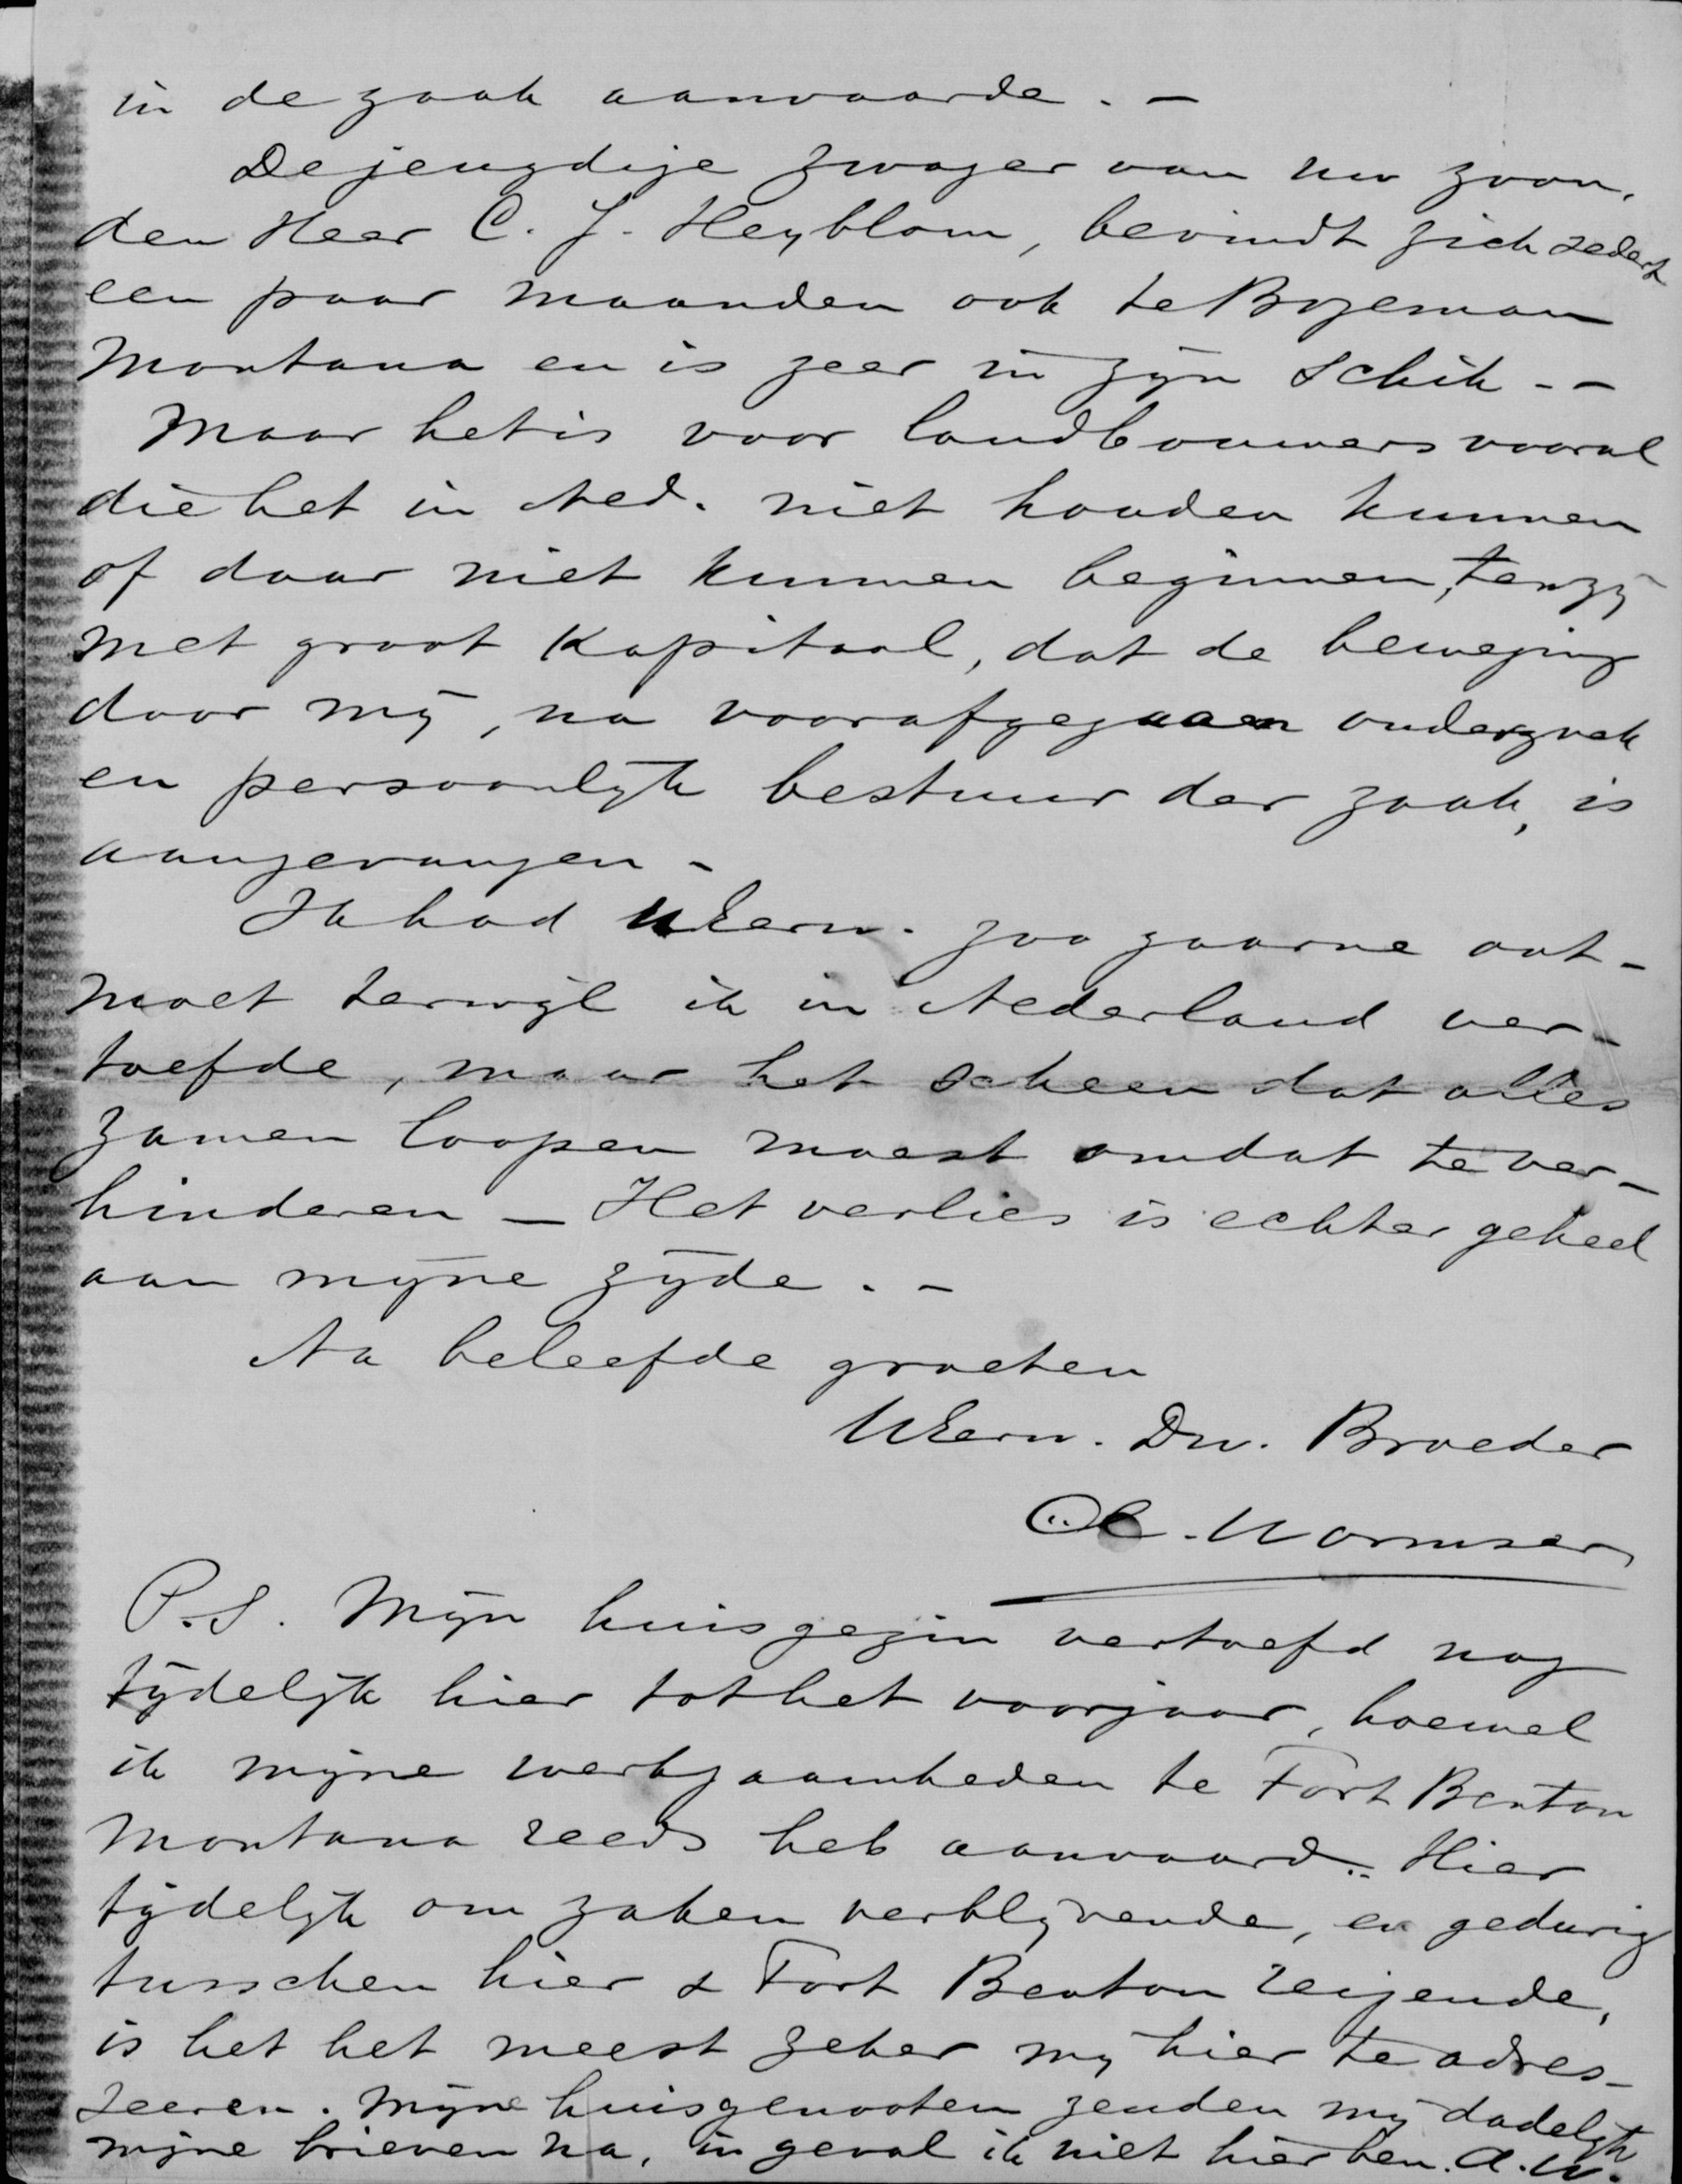 in de zaak aanvaarde. -
De jeugdige zwager van uw zoon,
den Heer C. J. Heyblom, bevindt zich sedert
een paar maanden ook te Bozeman
Montana en is zeer in zijn schik - -
Maar het is voor landbouwers vooral
die het in Ned. niet houden kunnen
of daar niet kunnen beginnen, tenzij
met groot Kapitaal, dat de beweging
door mij, na voorafgegaan onderzoek
en persoonlijk bestuur der zaak, is
aangevangen -
Ik had UEerw. zoo gaarne ont-
moet terwijl ik in Nederland ver-
toefde, maar het scheen dat alles
zamen loopen moest om dat te ver-
hinderen - Het verlies is echter geheel
aan mijne zijde. -
Na beleefde groeten
UEerw. Dw. Broeder
A. Wormser
P.S. Mijn huisgezin vertoefd nog
tijdelijk hier tot het voorjaar, hoewel
ik mijne werkzaamheden te Fort Benton
Montana reeds heb aanvaard. Hier
tijdelijk om zaken verblijvende, en gedurig
tusschen hier & Fort Benton reizende,
is het het meest zeker mij hier te adres-
seeren. Mijne huisgenooten zenden mij dadelijk
mijne brieven na, in geval ik niet hier ben. A.W.